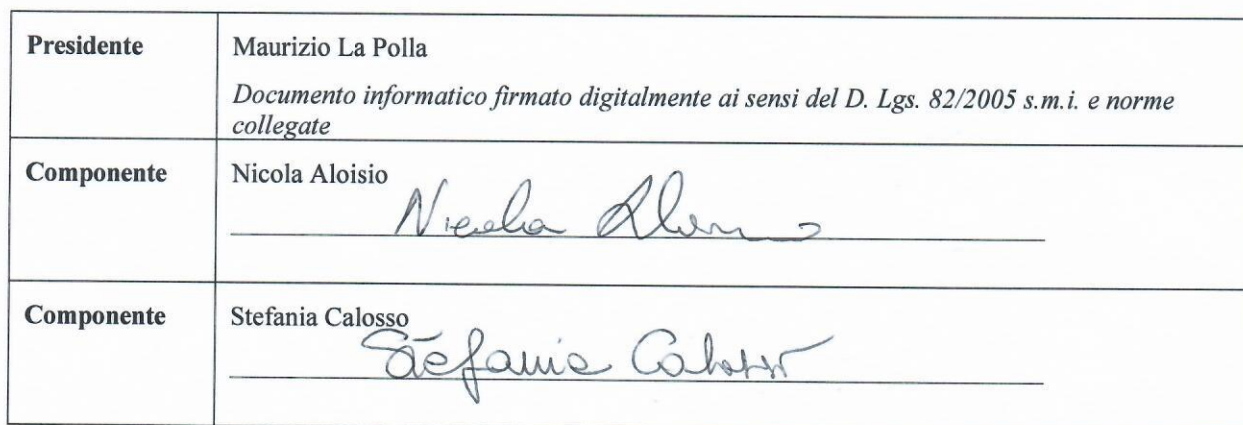 Presidente
Maurizio La Polla
Documento informatico firmato digitalmente ai sensi del D. Lgs. 82/2005 s.m.i. e norme
collegate
Componente
Nicola Aloisio
Nicola Aloisio
Componente
Stefania Calosso
Stefania Calosso